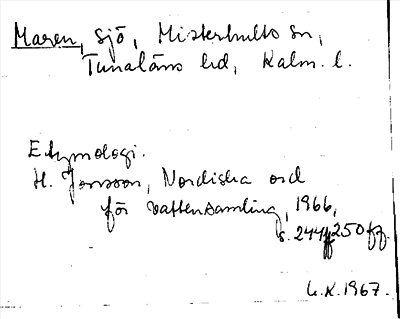 Maren, Sjö, Misterhults sn,
Tunaläns hd, Kalm. l.
Etymologi.
H. Jonsson, Nordiska ord
för vattensamling, 1966,
s. 244ff 250ff.
L.K. 1967.